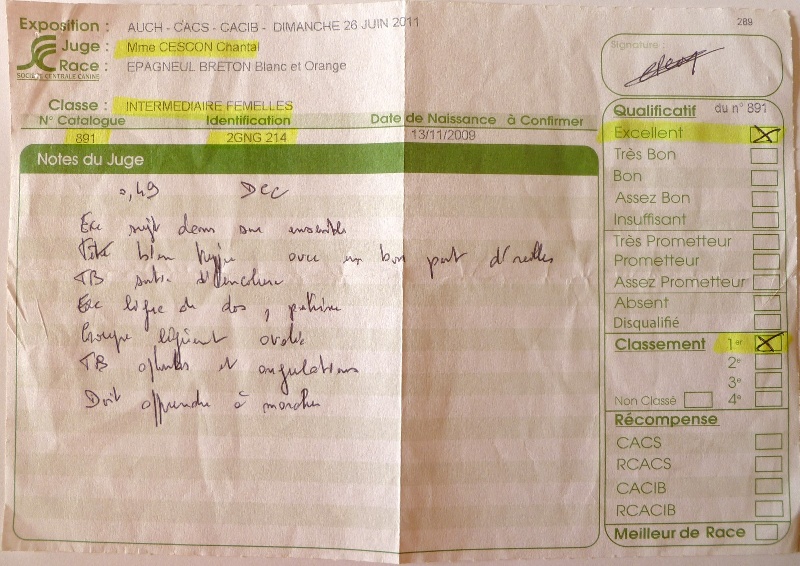 Exposition : AUCH - CACS - CACIB - DIMANCHE 26 JUIN 2011
289
Juge : Mme CESCON Chantal
Race : EPAGNEUL BRETON Blanc et Orange
SOCIÉTÉ CENTRALE CANINE
Signature :
Classe : INTERMEDIAIRE FEMELLES
N° Catalogue Identification Date de Naissance à Confirmer
891 2GNG 214 13/11/2009
Notes du Juge
0,49 DCC
Exc sujet dans son ensemble
bien avec un bon port d'oreilles
TB sortie d'encolure
Exc ligne de dos, poitrine
Croupe légèrement avalée
TB aplombs et angulations
Doit apprendre à marcher
Qualificatif du n° 891
Excellent
Très Bon
Bon
Assez Bon
Insuffisant
Très Prometteur
Prometteur
Assez Prometteur
Absent
Disqualifié
Classement 1er
2e
3e
Non Classé 4e
Récompense
CACS
RCACS
CACIB
RCACIB
Meilleur de Race